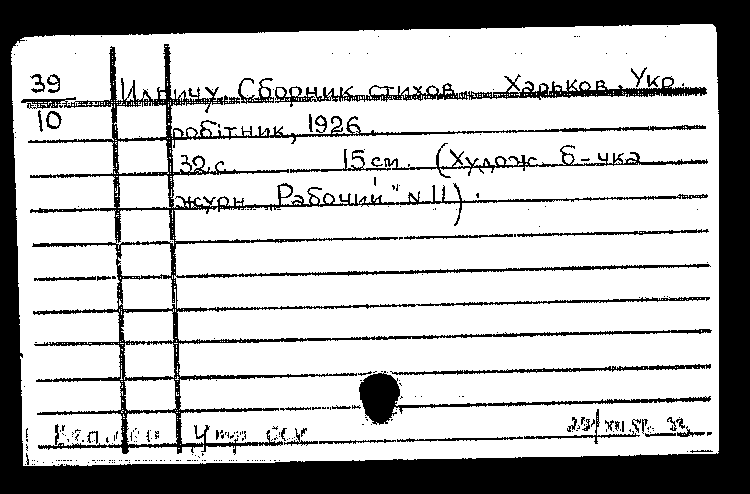 39
10
Ильичу. Сборник стихов Харьков, Укр.
робітник, 1926.
32 с. 15 см. (Худож б-чка
журн Рабочий" № 11).